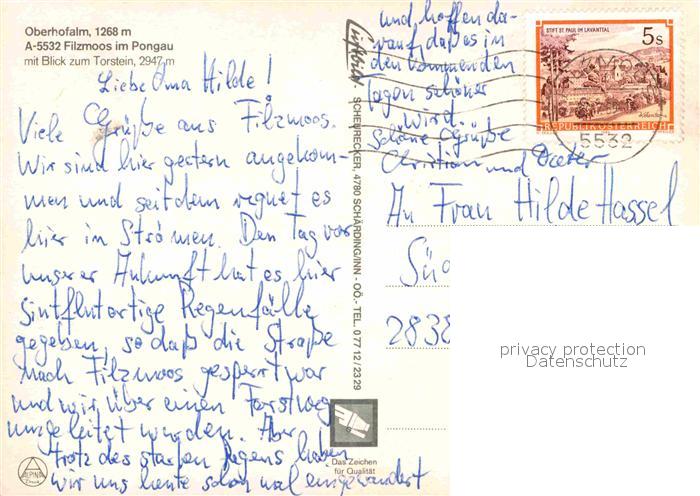 Oberhofalm, 1268 m
A-5532 Filzmoos im Pongau
mit Blick zum Torstein, 2947 m
Liebe Oma Hilde!
Viele Grüße aus Filzmoos.
Wir sind hier gestern angekom-
men und seitdem regnet es
hier in Strömen. Den Tag vor
unserer Ankunft hat es hier
sintflutartige Regenfälle
gegeben, so daß die Straße
nach Filzmoos gesperrt war
und wir über einen Forstweg
umgeleitet wurden. Aber
trotz des starken Regens haben
wir uns heute schon mal eingewandert
und hoffen da-
rauf, daß es in
den kommenden
Tagen schöner
wird.
Schöne Grüße
Christian und Dieter
An Frau Hilde Hassel
Sü
2838
STIFT ST. PAUL IM LAVANTTAL
5 S
REPUBLIK ÖSTERREICH
5532
SCHEURECKER, 4780 SCHÄRDING/INN - OÖ.- TEL. 0 77 12 / 23 29
Das Zeichen
für Qualität
ALPINA
Druck
privacy protection
Datenschutz